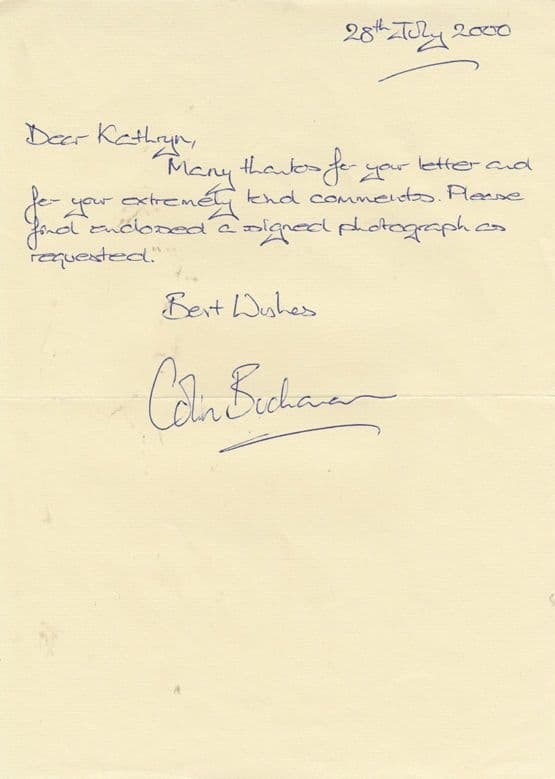 28th July 2000
Dear Kathryn,
Many thanks for your letter and
for your extremely kind comments. Please
find enclosed a signed photograph as
requested.
Best Wishes
Colin Buchanan